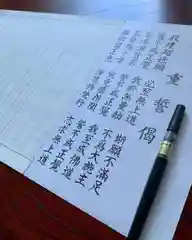 重誓偈
我建超世願 必至無上道 斯願不満足
誓不成正覚 我於無量劫 不為大施主
普済諸貧苦 誓不成正覚 我至成佛道
究竟靡所聞 誓不成正覚
浄慧修梵行 志求無上道